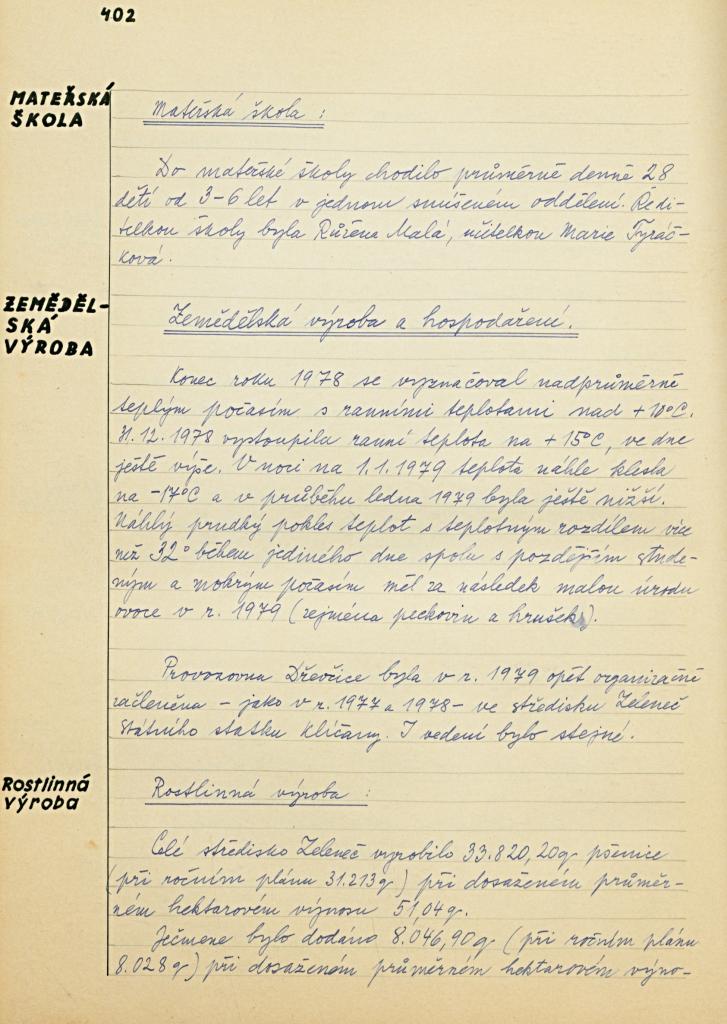 402
MATEŘSKÁ
ŠKOLA
Mateřská škola :
Do mateřské školy chodilo průměrně denně 28
dětí od 3-6 let v jednom smíšeném oddělení. Ředi-
telkou školy byla Růžena Malá, učitelkou Marie Tyráč-
ková.
ZEMĚDĚL-
SKÁ
VÝROBA
Zemědělská výroba a hospodaření.
Konec roku 1978 se vyznačoval nadprůměrně
teplým počasím s ranními teplotami nad +10°C.
31.12.1978 vystoupila ranní teplota na +15°C, ve dne
ještě výše. V noci na 1.1.1979 teplota náhle klesla
na -17°C a v průběhu ledna 1979 byla ještě nižší.
Náhlý prudký pokles teplot s teplotným rozdílem více
než 32° během jediného dne spolu s pozdějším stude-
ným a mokrým počasím měl za následek malou úrodu
ovoce v r. 1979 (zejména peckovin a hrušek).
Provozovna Dřevčice byla v r. 1979 opět organizačně
začleněna - jako v r. 1977 a 1978 - ve středisku Zeleneč
Státního statku Klíčany. I vedení bylo stejné.
Rostlinná
výroba
Rostlinná výroba :
Celé středisko Zeleneč vyrobilo 33.820,20q pšenice
(při ročním plánu 31.213q) při dosaženém průměr-
ném hektarovém výnosu 51,04q.
Ječmene bylo dodáno 8.046,90q (při ročním plánu
8.028q) při dosaženém průměrném hektarovém výno-